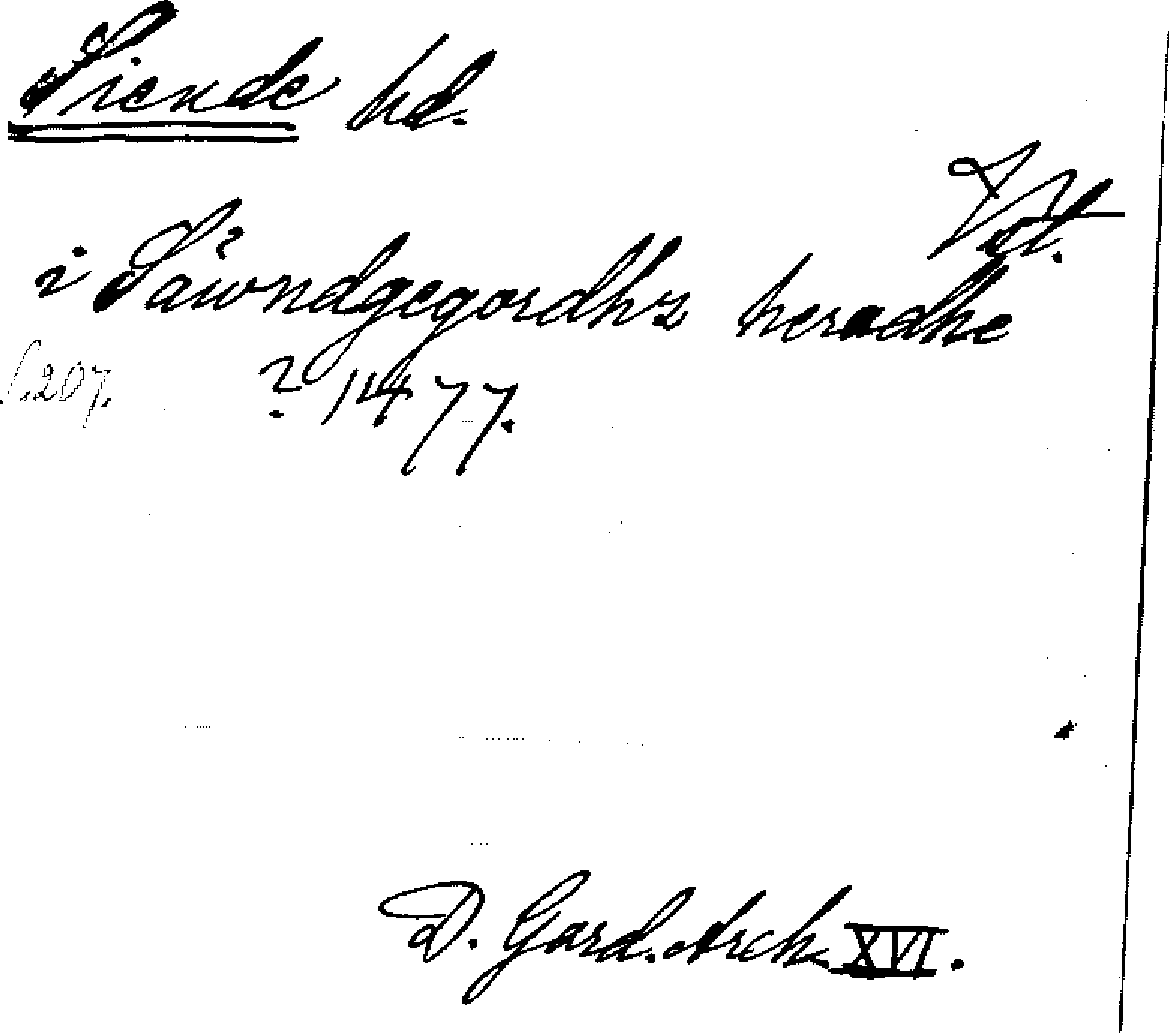 Siende hd.
Vstm.
i Säwndgegordhz heradhe
f. 207. ? 1477.
D. Gard. Arch. XVI.